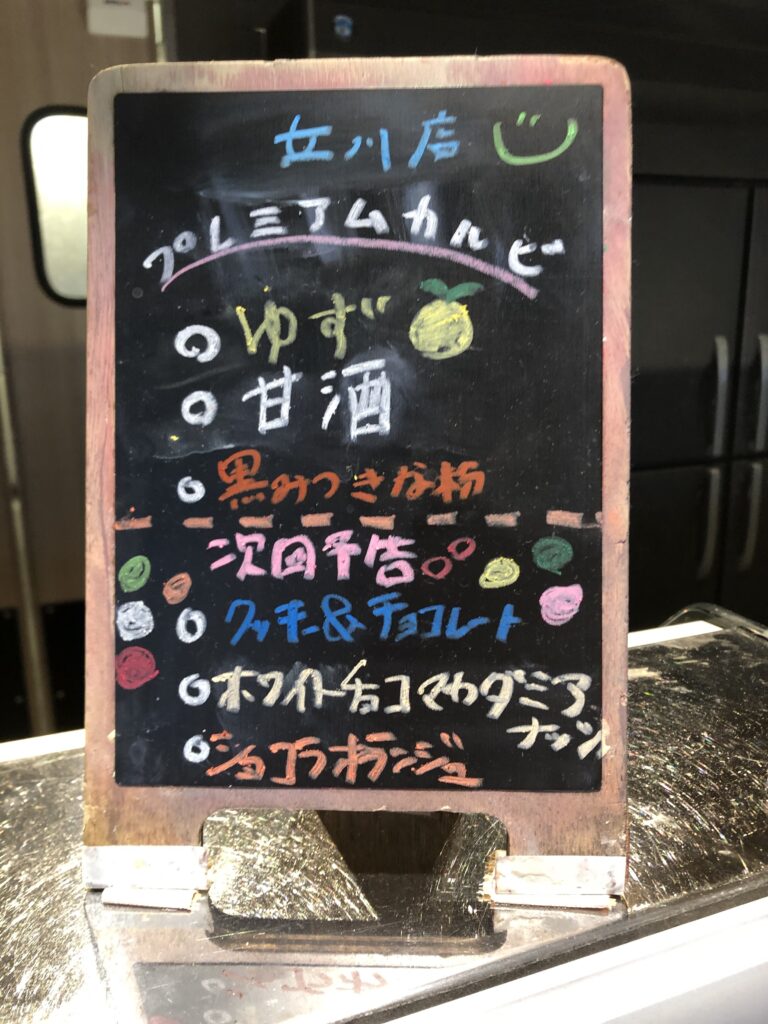 立川店
プレミアムカルビ
○ ゆず
○ 甘酒
○ 黒みつきな粉
次回予告
○ クッキー&チョコレート
○ ホワイトチョコマカダミア
ナッツ
○ ショコラオランジュ